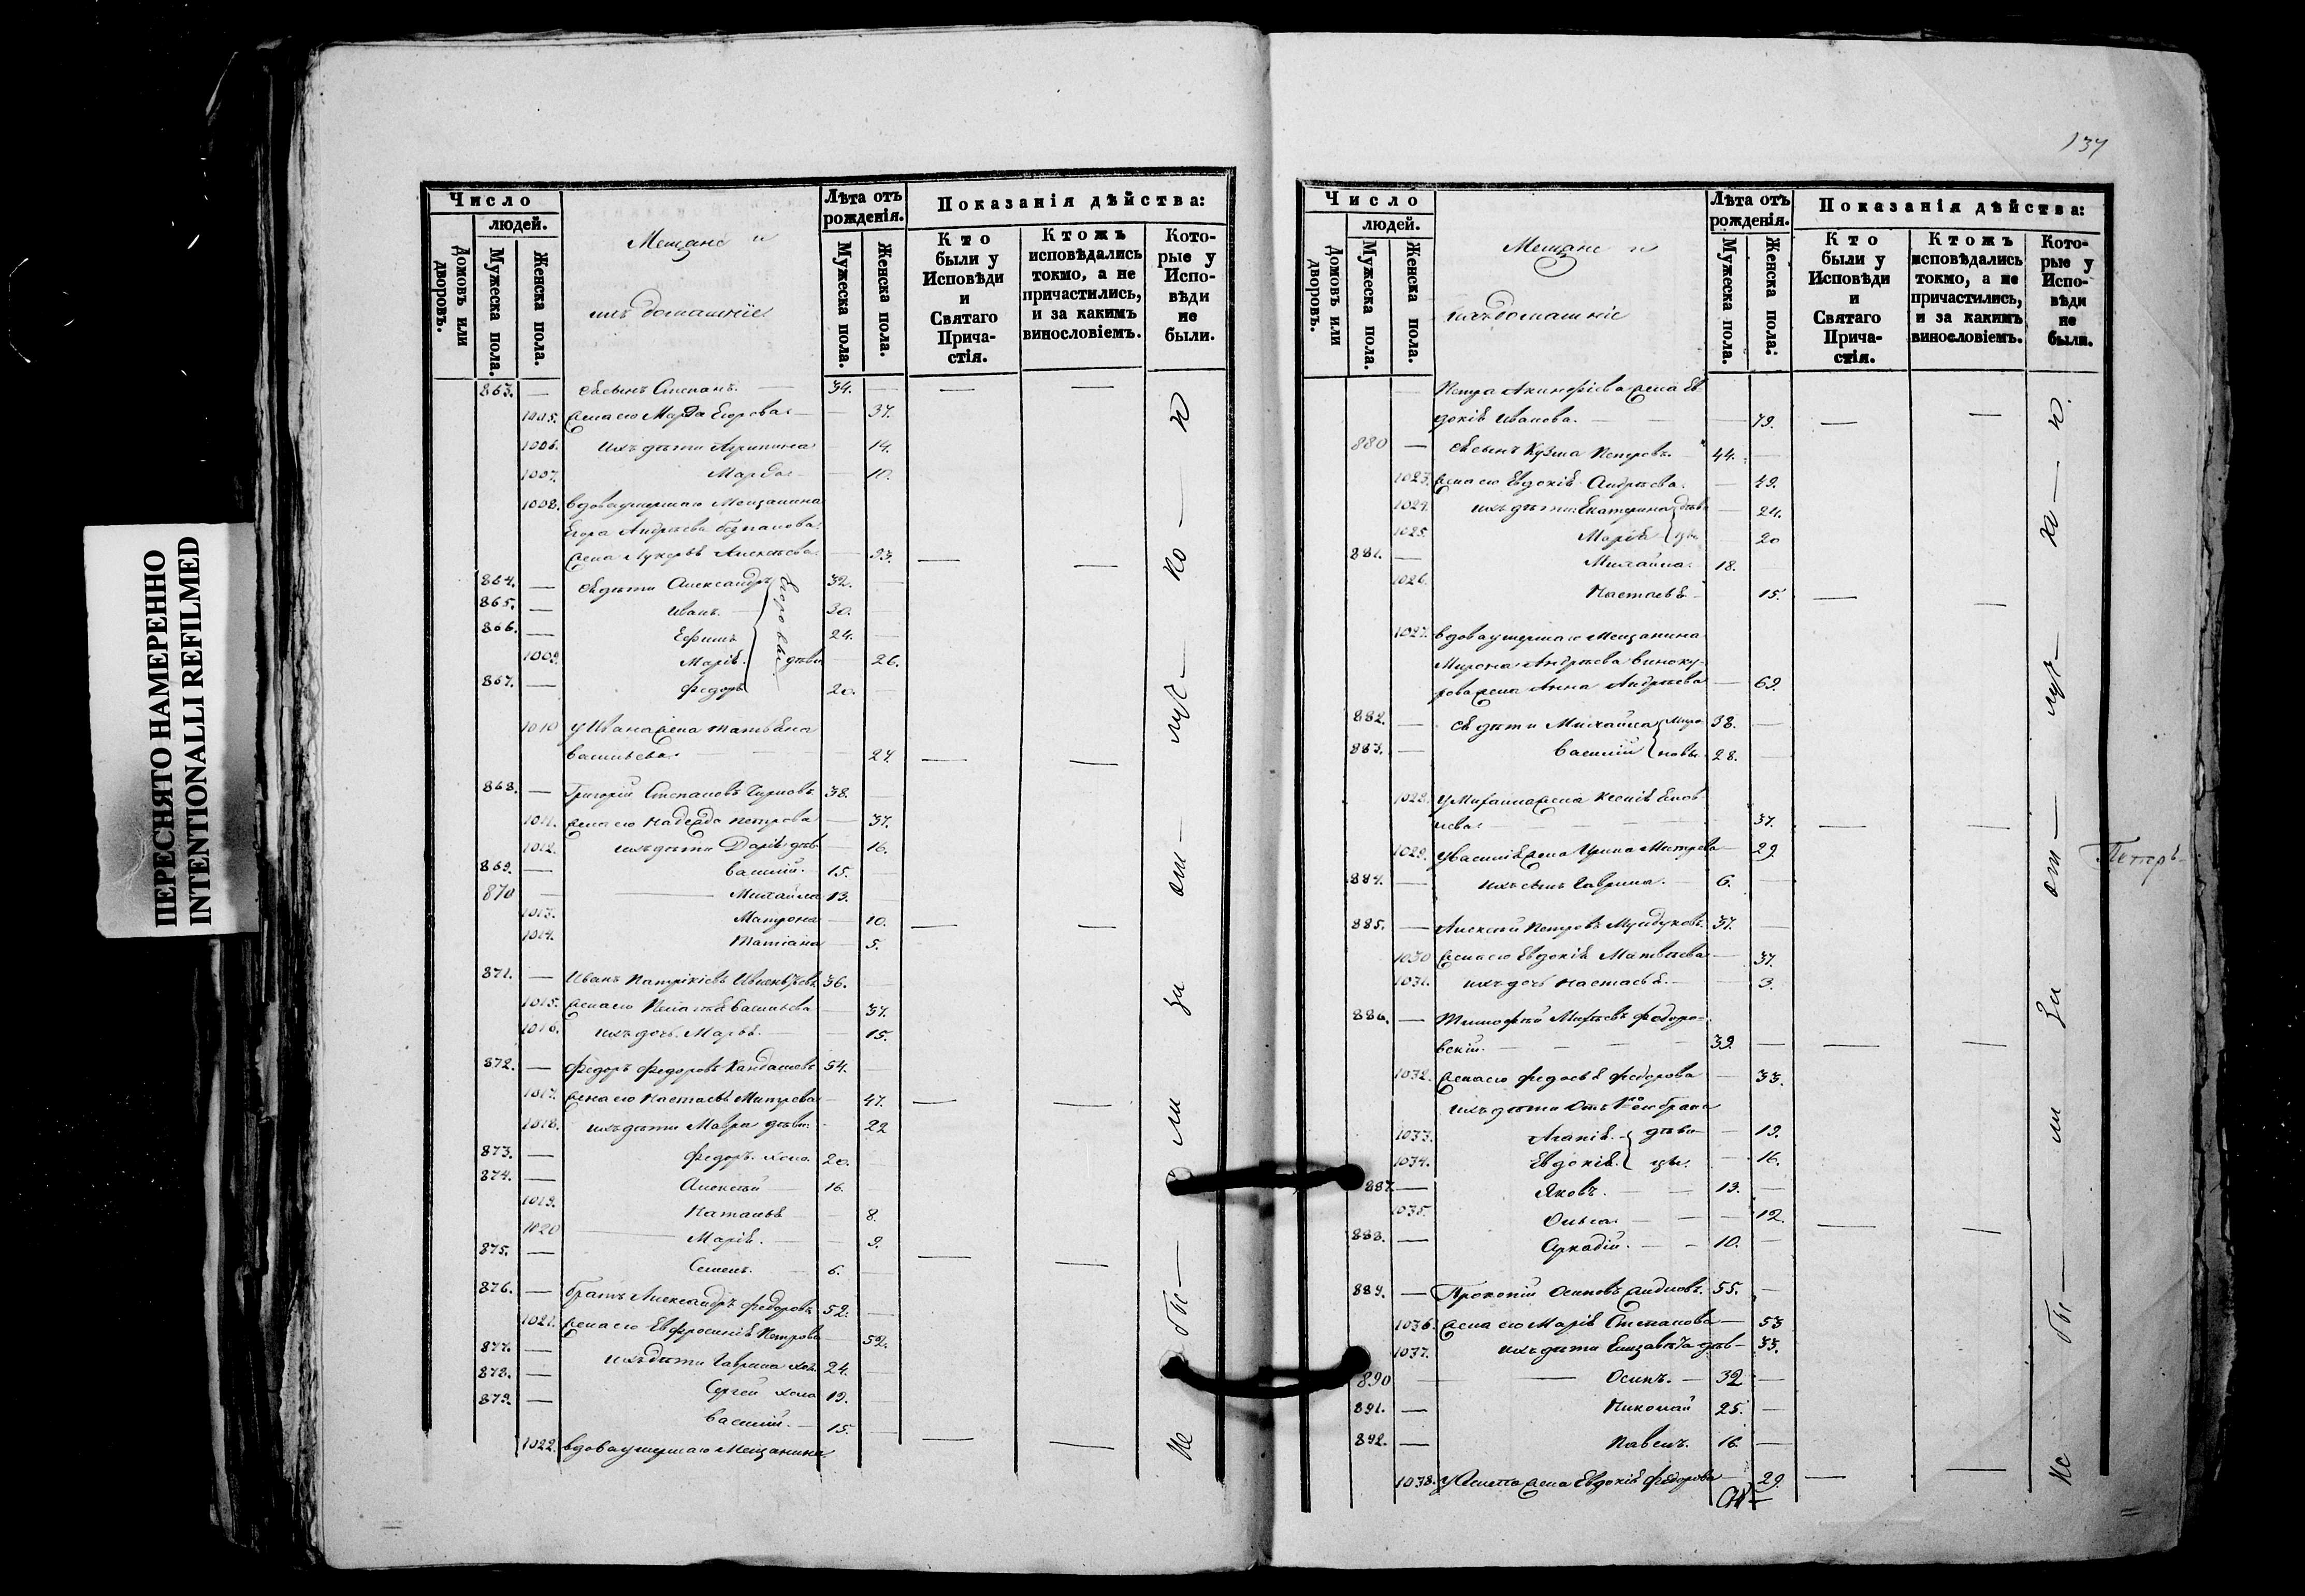 ПЕРЕСНЯТО НАМЕРЕННО
INTENTIONALLI REFILMED
Число
людей.
Домовъ или дворовъ.
Мужеска пола.
Женска пола.
Мещане и
ихъ домашніе
Лѣта отъ рожденія.
Мужеска пола.
Женска пола.
Показанія дѣйства:
Кто были у Исповѣди и Святаго Прича-стія.
Ктожъ исповѣдались токмо, а не причастились, и за какимъ винословіемъ.
Кото-рые у Испо-вѣди не были.
863. — Ея сынъ Степанъ. — 34. —
1005. Жена его Марѳа Егорова — 37.
1006. ихъ дѣти Агрипина — 14.
1007. Марѳа — 10.
1008. Вдова умершаго Мещанина
Егора Андрѣева
жена Лукерья Алексѣева — 53.
864. — Ея дѣти Александръ 32. —
865. — Иванъ. 30.
866. — Ефимъ 24. —
Егоровы
1009. Марія. дѣви — 26.
867. — Федоръ 20. —
1010 У Ивана жена Татьяна
Васильева — 27
868. — Григорій Степановъ 38. —
1011. Жена его Надежда Петрова — 37.
1012. ихъ дѣти Дарія дѣв — 16.
869. — Василій. 15. —
870 — Михайла 13.
1013. Матрона — 10.
1014. Татіана — 5.
871. — Иванъ Патрикіевъ 36. —
1015. Жена его Васильева — 37.
1016. ихъ дочь Марья. — 15.
872. — Федоръ Федоровъ Кандашевъ 54. —
1017. Жена его Настасья Митрева — 47.
1018. ихъ дѣти Мавра дѣви. — 22
873. — Федоръ холо. 20. —
874. — Алексѣй — 16. —
1019. Наталья — 8.
1020 Марія. — 9.
875. — Семенъ. 6. —
876. — Братъ Александръ Федоровъ 52. —
1021. Жена его Евфросинія Петрова — 52.
877. — ихъ дѣти Гаврила хол. 24. —
878. — Сергей холо 19. —
879. — Василій. — 15. —
1022. Вдова умершаго Мещанина
Не — бы — ли за — от — луч — ко — и
137
Число
людей.
Домовъ или дворовъ.
Мужеска пола.
Женска пола.
Мещане и
ихъ домашніе
Лѣта отъ рожденія.
Мужеска пола.
Женска пола:
Показанія дѣйства:
Кто были у Исповѣди и Святаго Прича-стія.
Ктожъ исповѣдались токмо, а не причастились, и за какимъ винословіемъ.
Кото-рые у Испо-вѣди не были.
— Петра Акинфіева жена Ев
докія Иванова. — 79.
880 — Ея сынъ Кузма Петровъ. 44. —
1023. Жена его Евдокія Андрѣева. — 49.
1024. ихъ дѣти: Екатерина дѣви — 24.
1025. Марія цы — 20
881. — Михайла. 18. —
1026. Настасья — 15.
1027. Вдова умершаго Мещанина
Мирона Андрѣева Виноку-
рова жена Анна Андрѣева — 69.
882. — Ея дѣти Михайла Миро 38. —
883. — Василій новы 28. —
1028. У Михаила жена Ксенія
лева — 37.
1029. У Василія жена Ирина Митрева — 29.
884. — ихъ сынъ Гаврила. — 6. —
885. — Алексѣй Петровъ 37. —
1030 Жена его Евдокія Матвѣева — 37.
1031. ихъ дочь Настасья. — 3.
886. — Тимофѣй Федоро-
вскій. — 39. —
1032. Жена его Федосья Федорова — 33.
ихъ дѣти Отъ 1го брака
1033. Агапія. дѣви — 19.
1034. Евдокія. цы. — 16.
887. — Яковъ. — 13. —
1035. Ольга — 12.
888. — Аркадій. — 10. —
889. — Прокопій Осиповъ 55. —
1036. Жена его Марія Степанова — 53
1037. ихъ дѣти Елизавета дѣв — 33.
890 — Осипъ. — 32 —
891. — Николай 25. —
892. — Павелъ. 16. —
1038. У Осипа жена Евдокія Федорова — 29.
Не — бы — ли за — от — луч — ко — и.
Петръ